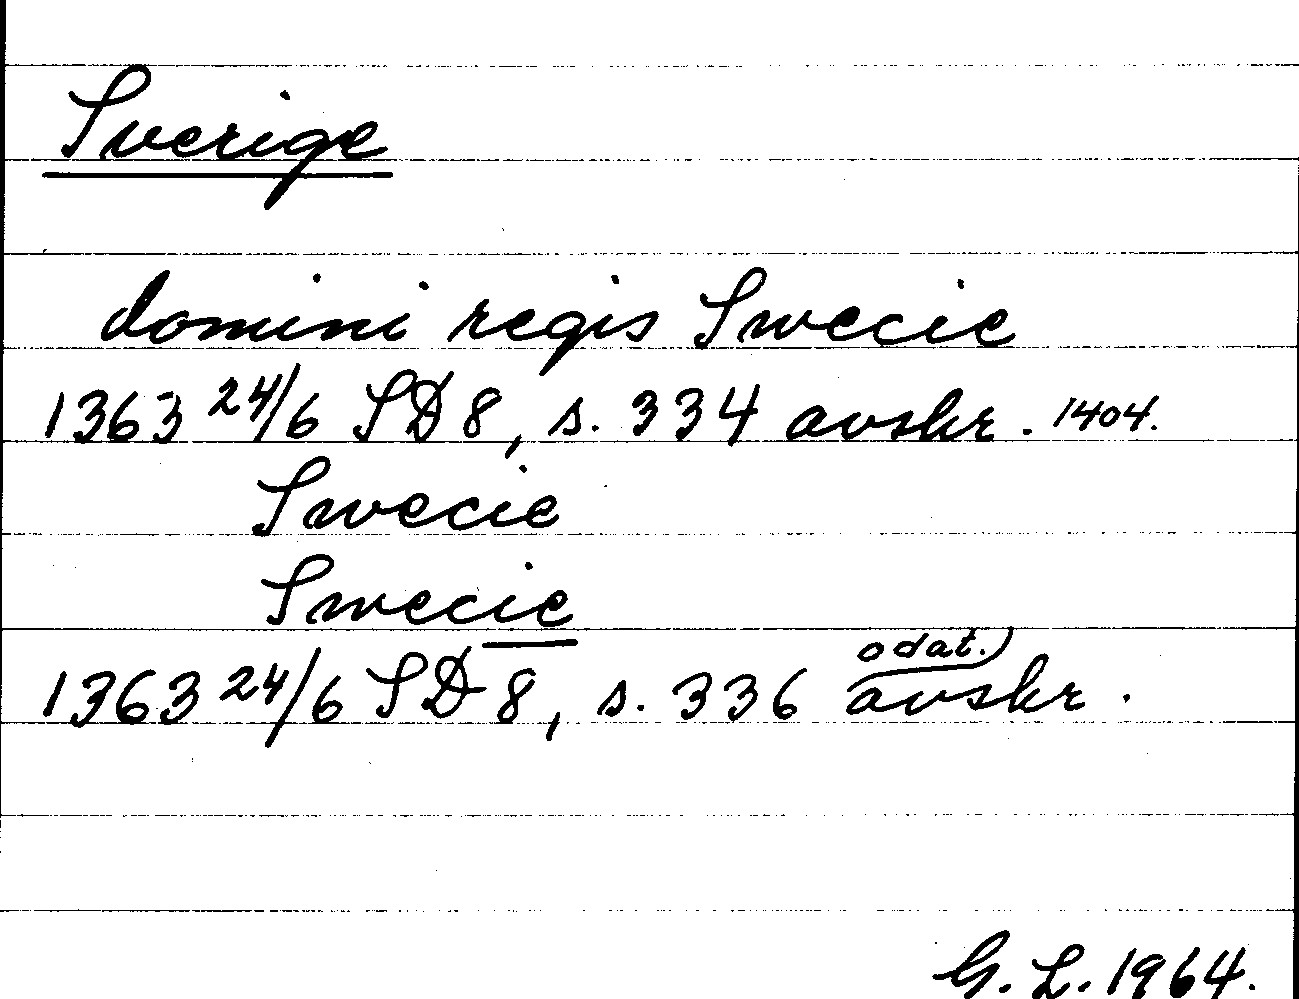 Sverige
domini regis Swecie
1363 24/6 SD 8, s. 334 avskr. 1404.
Swecie
Swecie
1363 24/6 SD 8, s. 336 odat.) avskr.
G. L. 1964.